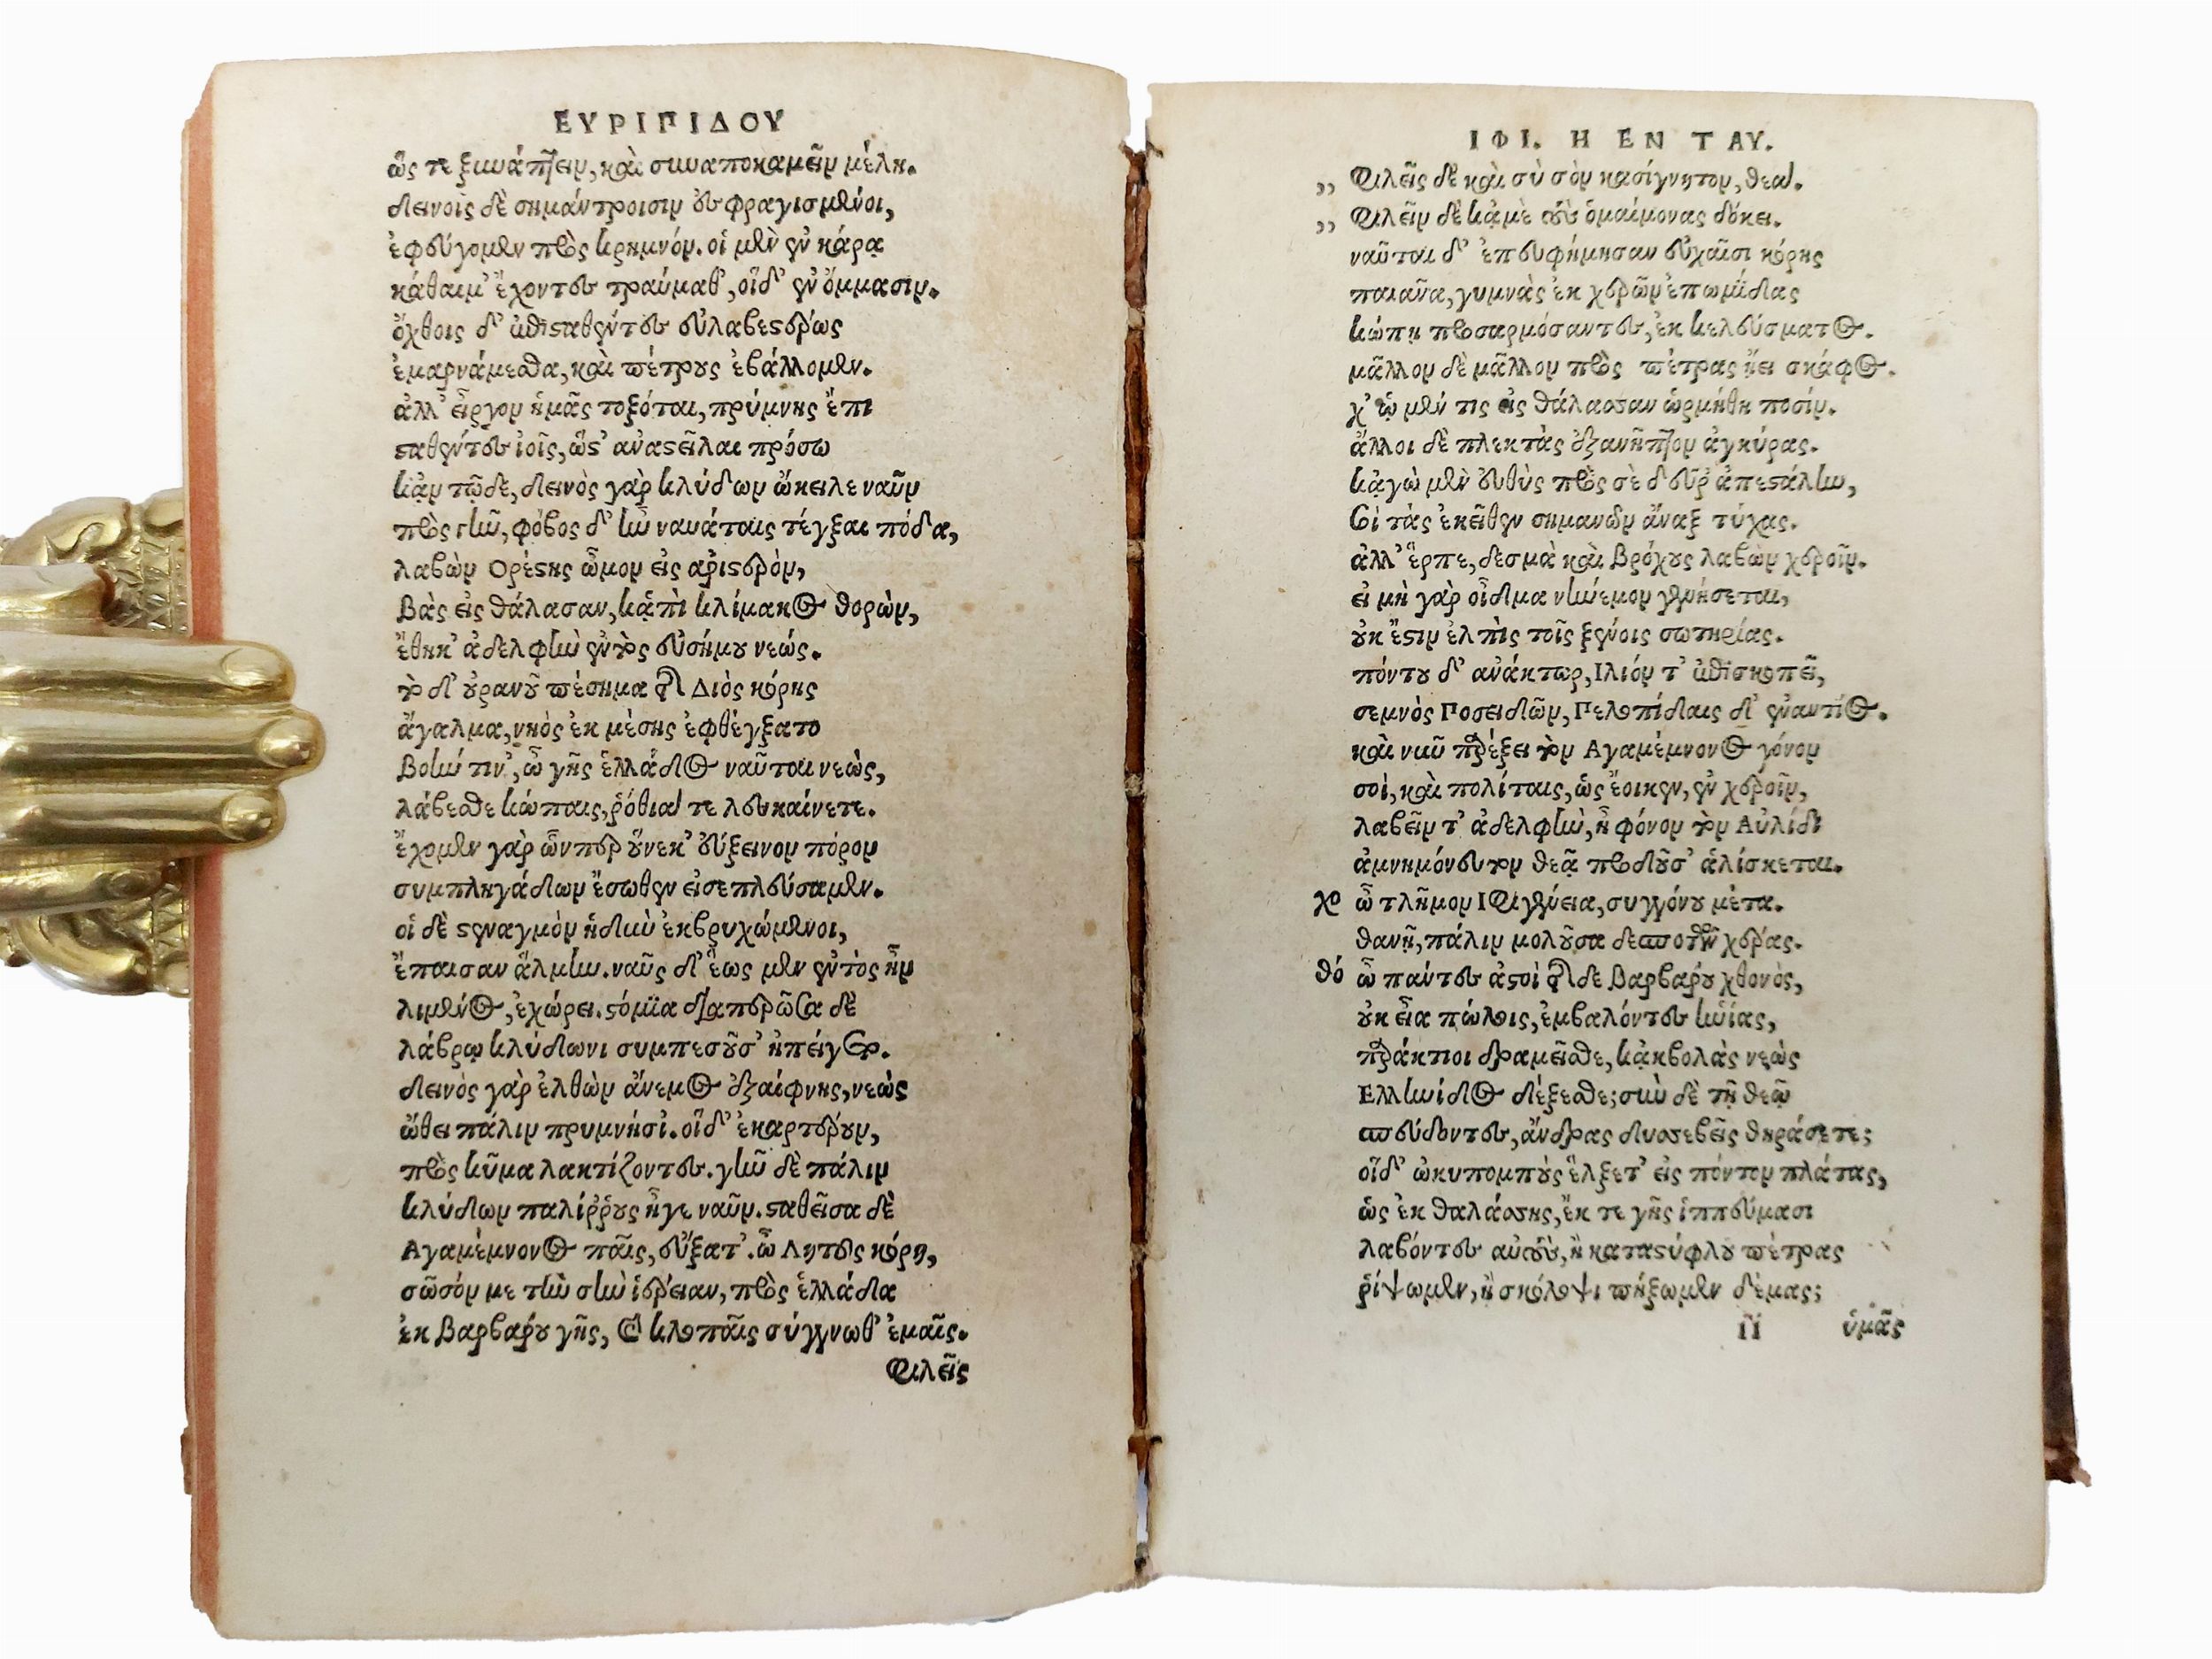 ΕΥΡΙΠΙΔΟΥ
ὥς τε ξυνάπτειν, καὶ συναποκαμεῖν μέλη.
δεινοῖς δὲ σημάντροισιν ἐσφραγισμένοι,
ἐφεύγομεν πρὸς κρημνόν. οἱ μὲν ἐν κάρᾳ
κάθαιμ' ἔχοντες τραύμαθ', οἱ δ' ἐν ὄμμασιν.
ὄχθοις δ' ἐπισταθέντες εὐλαβεστέρως
ἐμαρνάμεσθα, καὶ πέτρους ἐβάλλομεν.
ἀλλ' εἶργον ἡμᾶς τοξόται, πρύμνης ἔπι
σταθέντες ἰοῖς, ὥστ' ἀναστεῖλαι πρόσω
κἀν τῷδε, δεινὸς γὰρ κλύδων ὤκειλε ναῦν
πρὸς γῆν, φόβος δ' ἦν ναυάταις τέγξαι πόδα,
λαβὼν Ορέστης ὦμον εἰς ἀριστερὸν,
βὰς εἰς θάλασαν, κἀπὶ κλίμακος θορὼν,
ἔθηκ' ἀδελφὴν ἐντὸς εὐσήμου νεώς.
τὸ δ' οὐρανοῦ πέσημα τῆς Διὸς κόρης
ἄγαλμα, νηὸς ἐκ μέσης ἐφθέγξατο
βοήν τιν', ὦ γῆς ἑλλάδος ναῦται νεὼς,
λάβεσθε κώπαις, ῥόθιά τε λευκαίνετε.
ἔχομεν γὰρ ὧνπερ οὕνεκ' εὔξεινον πόρον
συμπληγάδων ἔσωθεν εἰσεπλεύσαμεν.
οἱ δὲ στεναγμὸν ἡδὺν ἐκβρυχώμενοι,
ἔπαισαν ἅλμην. ναῦς δ' ἕως μὲν ἐντὸς ἦν
λιμένος, ἐχώρει. στόμια διαπερῶσα δὲ
λάβρῳ κλύδωνι συμπεσοῦσ' ἠπείγετο.
δεινὸς γὰρ ἐλθὼν ἄνεμος ἐξαίφνης, νεὼς
ὤθει πάλιν πρυμνήσι'. οἱ δ' ἐκαρτέρουν,
πρὸς κῦμα λακτίζοντες. γῆν δὲ πάλιν
κλύδων παλίῤῥους ἦγε ναῦν. σταθεῖσα δὲ
Αγαμέμνονος παῖς, εὔξατ'. ὦ Λητοῦς κόρη,
σῶσόν με τὴν σὴν ἱέρειαν, πρὸς ἑλλάδα
ἐκ βαρβάρου γῆς, καὶ κλοπαῖς σύγγνωθ' ἐμαῖς.
φιλεῖς
ΙΦΙ. Η ΕΝ ΤΑΥ.
,, φιλεῖς δὲ καὶ σὺ σὸν κασίγνητον, θεά.
,, φιλεῖν δὲ κἀμὲ τοὺς ὁμαίμονας δόκει.
ναῦται δ' ἐπευφήμησαν εὐχαῖσι κόρης
παιᾶνα, γυμνὰς ἐκ χερῶν ἐπωμίδας
κώπῃ προσαρμόσαντες, ἐκ κελεύσματος.
μᾶλλον δὲ μᾶλλον πρὸς πέτρας ᾔει σκάφος.
χ' ὦ μέν τις εἰς θάλασσαν ὡρμήθη ποσίν.
ἄλλοι δὲ πλεκτὰς ἐξανῆπτον ἀγκύρας.
κἀγὼ μὲν εὐθὺς πρὸς σὲ δεῦρ' ἀπεστάλην,
σοὶ τὰς ἐκεῖθεν σημανῶν ἄναξ τύχας.
ἀλλ' ἕρπε, δεσμὰ καὶ βρόχους λαβὼν χεροῖν.
εἰ μὴ γὰρ οἶδμα νήνεμον γενήσεται,
οὐκ ἔστιν ἐλπὶς τοῖς ξένοις σωτηρίας.
πόντου δ' ἀνάκτωρ, Ιλιόν τ' ἐπισκοπεῖ,
σεμνὸς Ποσειδῶν, Πελοπίδαις δ' ἐναντίος.
καὶ νῦν παρέξει τὸν Αγαμέμνονος γόνον
σοὶ, καὶ πολίταις, ὡς ἔοικεν, ἐν χεροῖν,
λαβεῖν τ' ἀδελφὴν, ἣ φόνον τὸν Αὐλίδι
ἀμνημόνευτον θεᾷ προδοῦσ' ἁλίσκεται.
χο ὦ τλῆμον Ιφιγένεια, συγγόνου μέτα.
θανῇ, πάλιν μολοῦσα δεσποτῶν χέρας.
θό ὦ πάντες ἀστοὶ τῆςδε βαρβάρου χθονὸς,
οὐκ εἶα πώλοις, ἐμβαλόντες ἡνίας,
παράκτιοι δραμεῖσθε, κἀκβολὰς νεὼς
Ελληνίδος δέξεσθε; σὺν δὲ τῇ θεῷ
σπεύδοντες, ἄνδρας δυσσεβεῖς θηράσετε;
οἱ δ' ὠκυπομποὺς ἕλξετ' εἰς πόντον πλάτας,
ὡς ἐκ θαλάσσης, ἔκ τε γῆς ἱππεύμασι
λαβόντες αὐτοὺς, ἢ κατὰ στύφλου πέτρας
ῥίψωμεν, ἢ σκόλοψι πήξωμεν δέμας;
ὑμᾶς